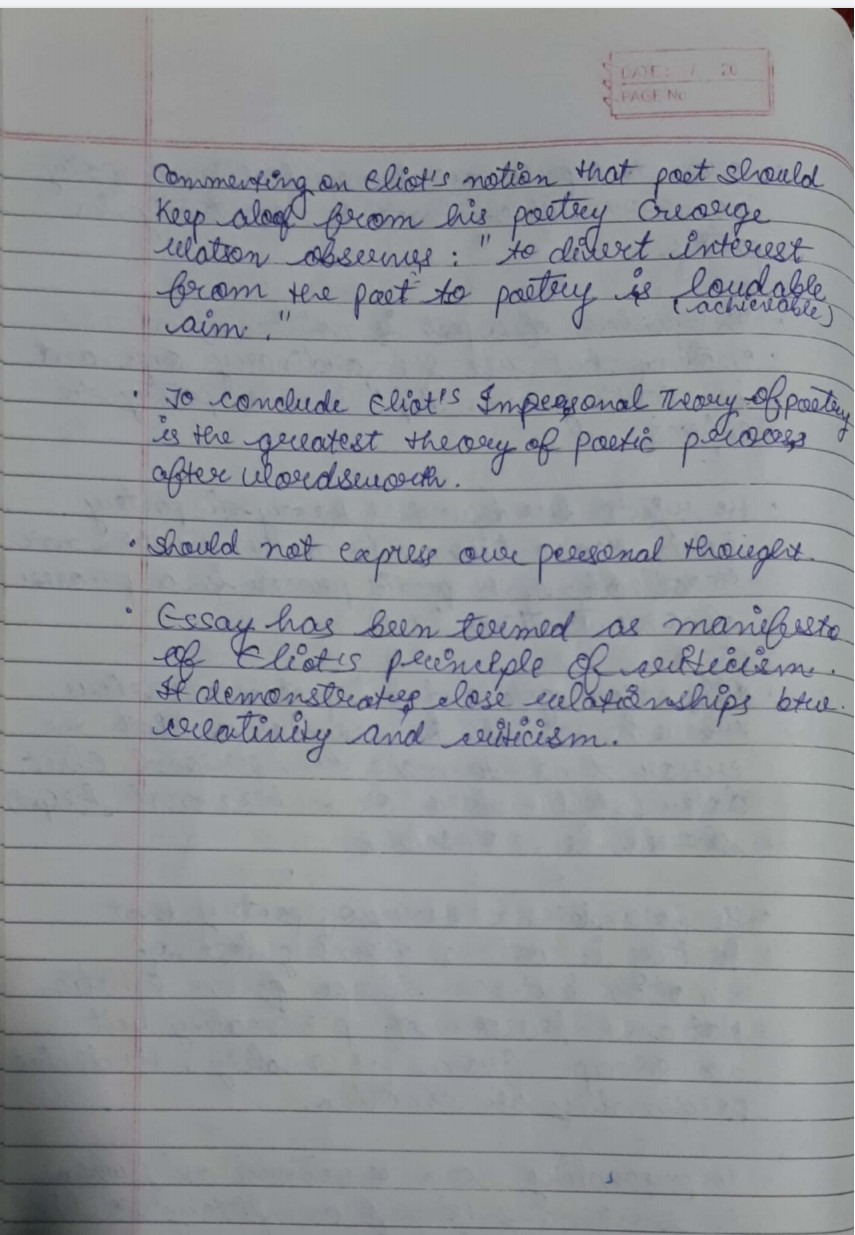 DATE: / 20
PAGE No
Commenting on Eliot's notion that poet should
Keep aloof from his poetry George
Watson observes : " to divert interest
from the poet to poetry is loudable
(achievable)
aim ."
· To conclude Eliot's Impersonal Theory of poetry
is the greatest theory of poetic process
after Wordsworth.
· should not express our personal thought.
· Essay has been termed as manifesto
of Eliot's principle of criticism.
It demonstrates close relationships btw.
creativity and criticism.